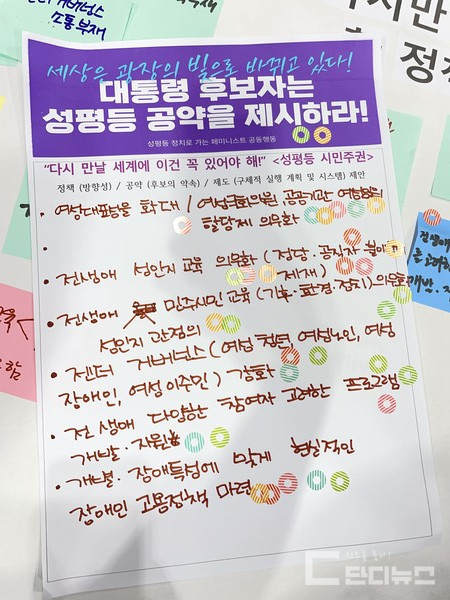 거버넌스
소통부재
세상은 광장의 빛으로 바뀌고 있다!
대통령 후보자는
성평등 공약을 제시하라!
성평등 정치로 가는 페미니스트 공동행동
"다시 만날 세계에 이건 꼭 있어야 해!" <성평등 시민주권>
정책 (방향성) / 공약 (후보의 약속) / 제도 (구체적 실행 계획 및 시스템) 제안
• 여성대표성을 확대 / 여성국회의원 공공기관
할당제 의무화
•
• 전생애 성인지 교육 의무화 (정당·공직자
제재)
• 전생애 민주시민 교육 (기후·환경·정치) 의무화
성인지 관점의
• 젠더 거버넌스 (여성청년, 여성노인, 여성
장애인, 여성이주민) 강화
• 전 생애 다양한 참여자 고려한 프로그램
개발·지원
• 개별·장애특성에 맞게 현실적인
장애인 고용정책 마련
단디뉴스